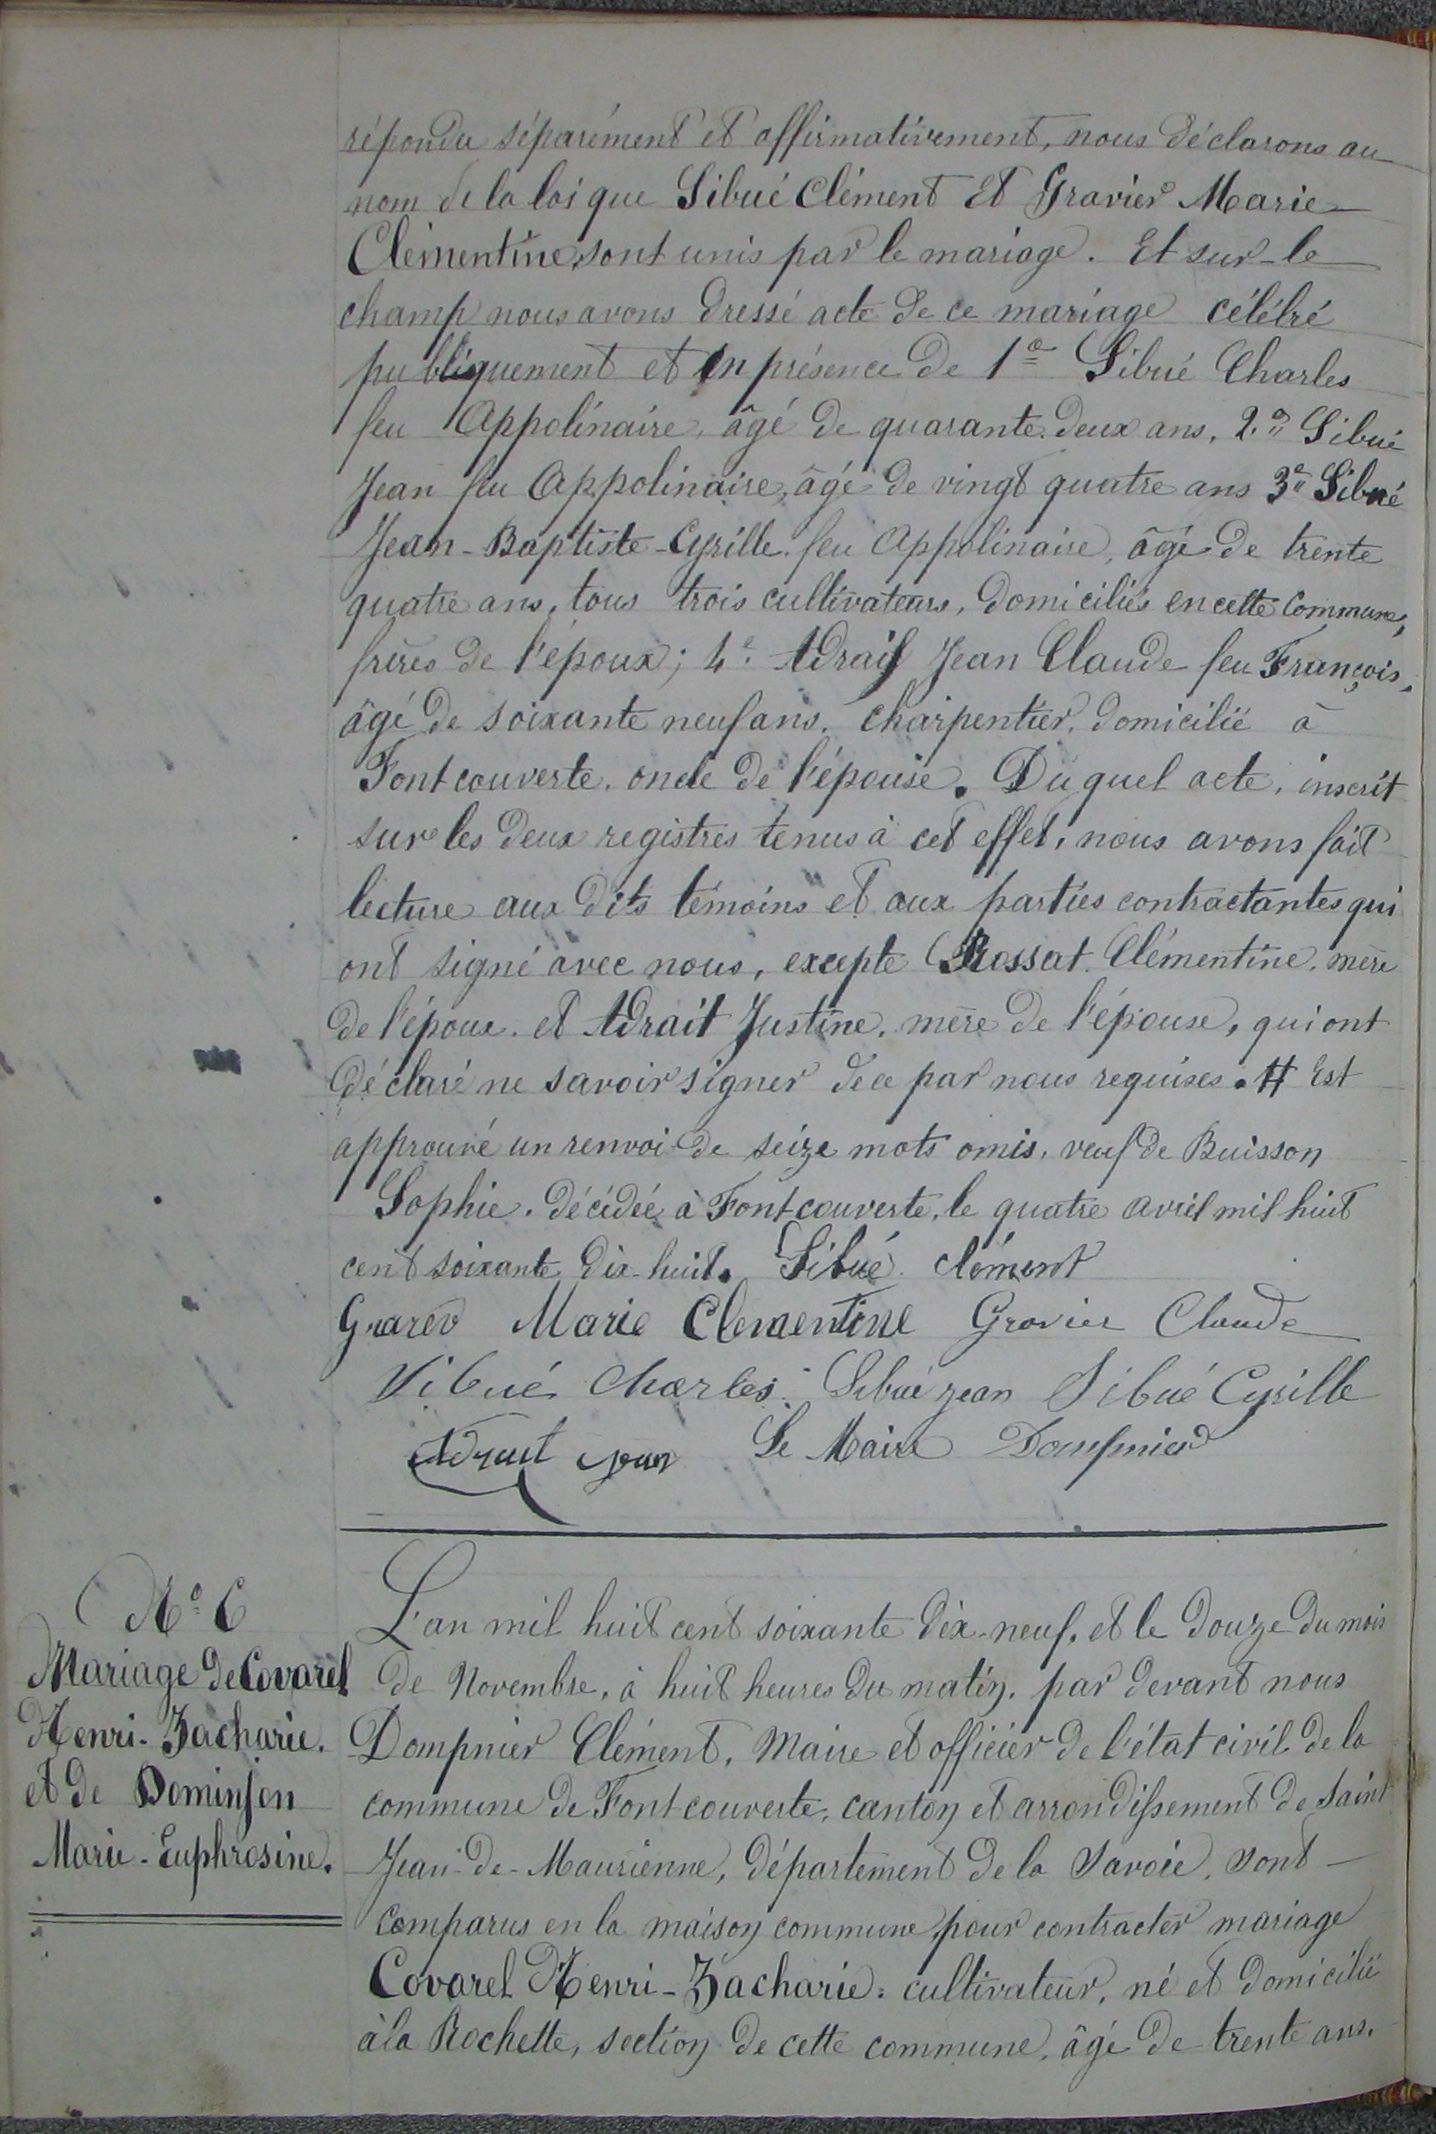 répondu séparément et affirmativement, nous déclarons au
nom de la loi que Sibué Clément Et Gravier Marie
Clémentine, sont unis par le mariage. Et sur-le
champ nous avons dressé acte de ce mariage célébré
publiquement et en présence de 1º Sibué Charles
feu Appolinaire, âgé de quarante deux ans, 2º Sibué
Jean feu Appolinaire, âgé de vingt quatre ans 3º Sibué
Jean-Baptiste-Cyrille feu Appolinaire, âgé de trente
quatre ans, tous trois cultivateurs, domiciliés en cette commune,
frères de l'époux; 4º Adrait Jean Claude feu François,
âgé de soixante neuf ans, charpentier, domicilié à
Fontcouverte, oncle de l'épouse. Duquel acte, inscrit
sur les deux registres tenus à cet effet, nous avons fait
lecture aux dits témoins et aux parties contractantes qui
ont signé avec nous, excepte Rossat Clémentine, mère
de l'époux, et Adrait Justine, mère de l'épouse, qui ont
déclaré ne savoir signer de ce par nous requises. # Est
approuvé un renvoi de seize mots omis, veuf de Buisson
Sophie, décédée à Fontcouverte, le quatre avril mil huit
cent soixante dix-huit. Sibué clément
Marie Clementine Gravier Claude
Sibué Charles Sibué jean Sibué Cyrille
Adrait jean Le Maire Dompnier
Nº 6
Mariage de Covarel
Henri-Zacharie.
et de Dominjon
Marie-Euphrosine.
L'an mil huit cent soixante dix-neuf, et le douze du mois
de Novembre, à huit heures du matin, par devant nous
Dompnier Clément, Maire et officier de l'état civil de la
commune de Fontcouverte, canton et arrondissement de Saint
Jean-de-Maurienne, département de la Savoie, sont
comparus en la maison commune pour contracter mariage
Covarel Henri-Zacharie, cultivateur, né et domicilié
à la Rochette, section de cette commune, âgé de trente ans,